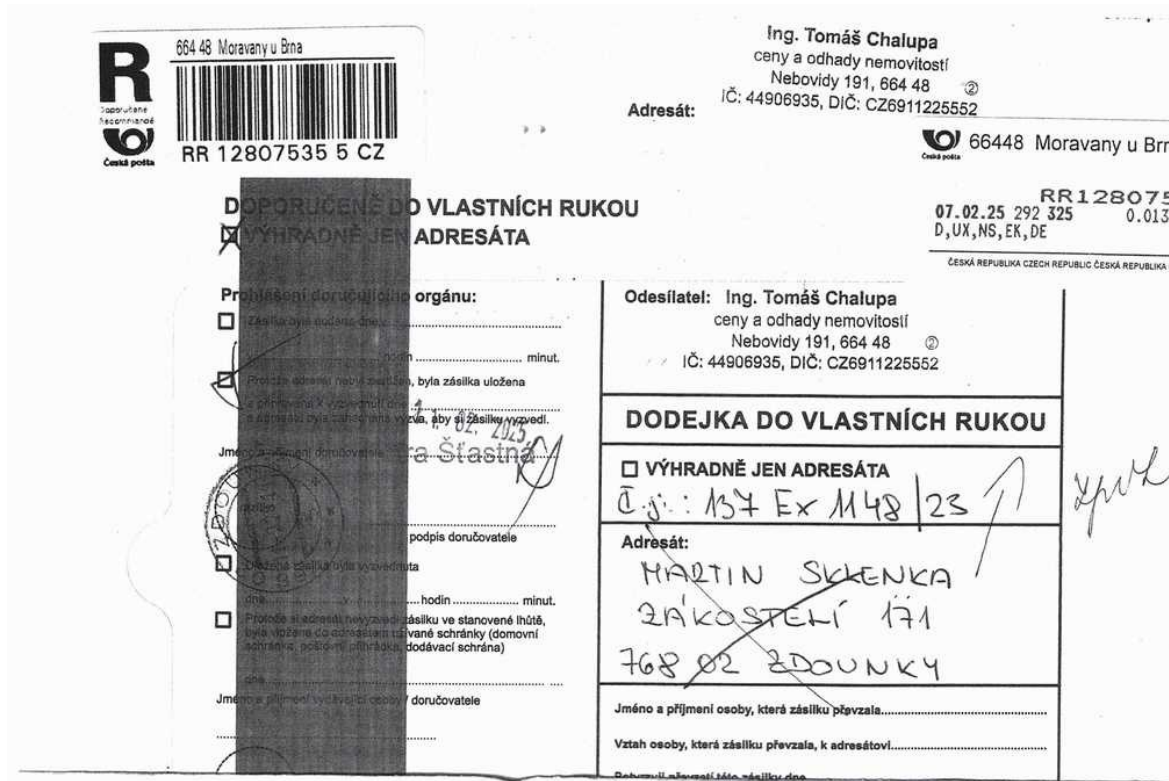 R
Doporučeně
Recommandé
Česká pošta
664 48 Moravany u Brna
RR 12807535 5 CZ
Adresát:
Ing. Tomáš Chalupa
ceny a odhady nemovitostí
Nebovidy 191, 664 48 ②
IČ: 44906935, DIČ: CZ6911225552
Česká pošta
66448 Moravany u Brn
RR128075
07.02.25 292 325 0.013
D,UX,NS,EK,DE
ČESKÁ REPUBLIKA CZECH REPUBLIC ČESKÁ REPUBLIKA
DOPORUČENĚ DO VLASTNÍCH RUKOU
VÝHRADNĚ JEN ADRESÁTA
Prohlášení doručujícího orgánu:
Zásilka byla dodána dne
hodin minut.
Protože adresát nebyl zastižen, byla zásilka uložena
a připravena k vyzvednutí dne
a adresátovi byla zanechána výzva, aby si zásilku vyzvedl.
11. 02. 2025
Jméno a příjmení doručovatele
ra Šťastná
podpis doručovatele
Uložená zásilka byla vyzvednuta
dne v hodin minut.
Protože si adresát nevyzvedl zásilku ve stanovené lhůtě,
byla vložena do adresátem užívané schránky (domovní
schránka, poštovní přihrádka, dodávací schrána)
dne
Jméno a příjmení vydávající osoby / doručovatele
Odesílatel: Ing. Tomáš Chalupa
ceny a odhady nemovitostí
Nebovidy 191, 664 48 ②
IČ: 44906935, DIČ: CZ6911225552
DODEJKA DO VLASTNÍCH RUKOU
VÝHRADNĚ JEN ADRESÁTA
Č.j.: 137 Ex 1148/23
Adresát:
MARTIN SKLENKA
ZÁKOSTELÍ 171
768 02 ZDOUNKY
Jméno a příjmení osoby, která zásilku převzala
Vztah osoby, která zásilku převzala, k adresátovi
Potvrzuji převzetí této zásilky dne